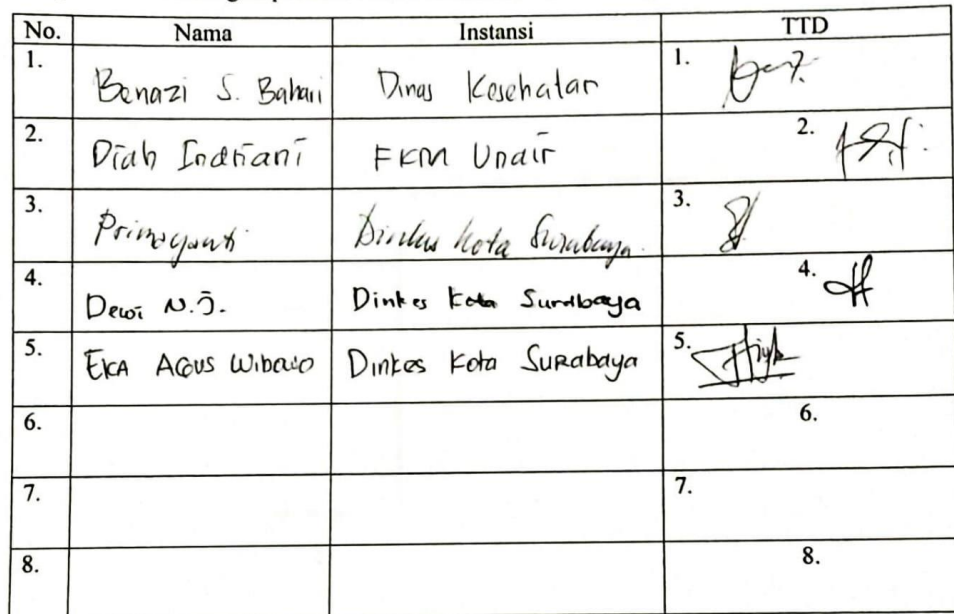 No. Nama Instansi TTD
1. Benazi S. Bahari Dinas Kesehatan 1.
2. Diah Indriani FKM Unair 2.
3. Primayanti Dinkes Kota Surabaya 3.
4. Dewi N.J. Dinkes Kota Surabaya 4.
5. EKA AGUS Wibowo Dinkes Kota Surabaya 5.
6. 6.
7. 7.
8. 8.